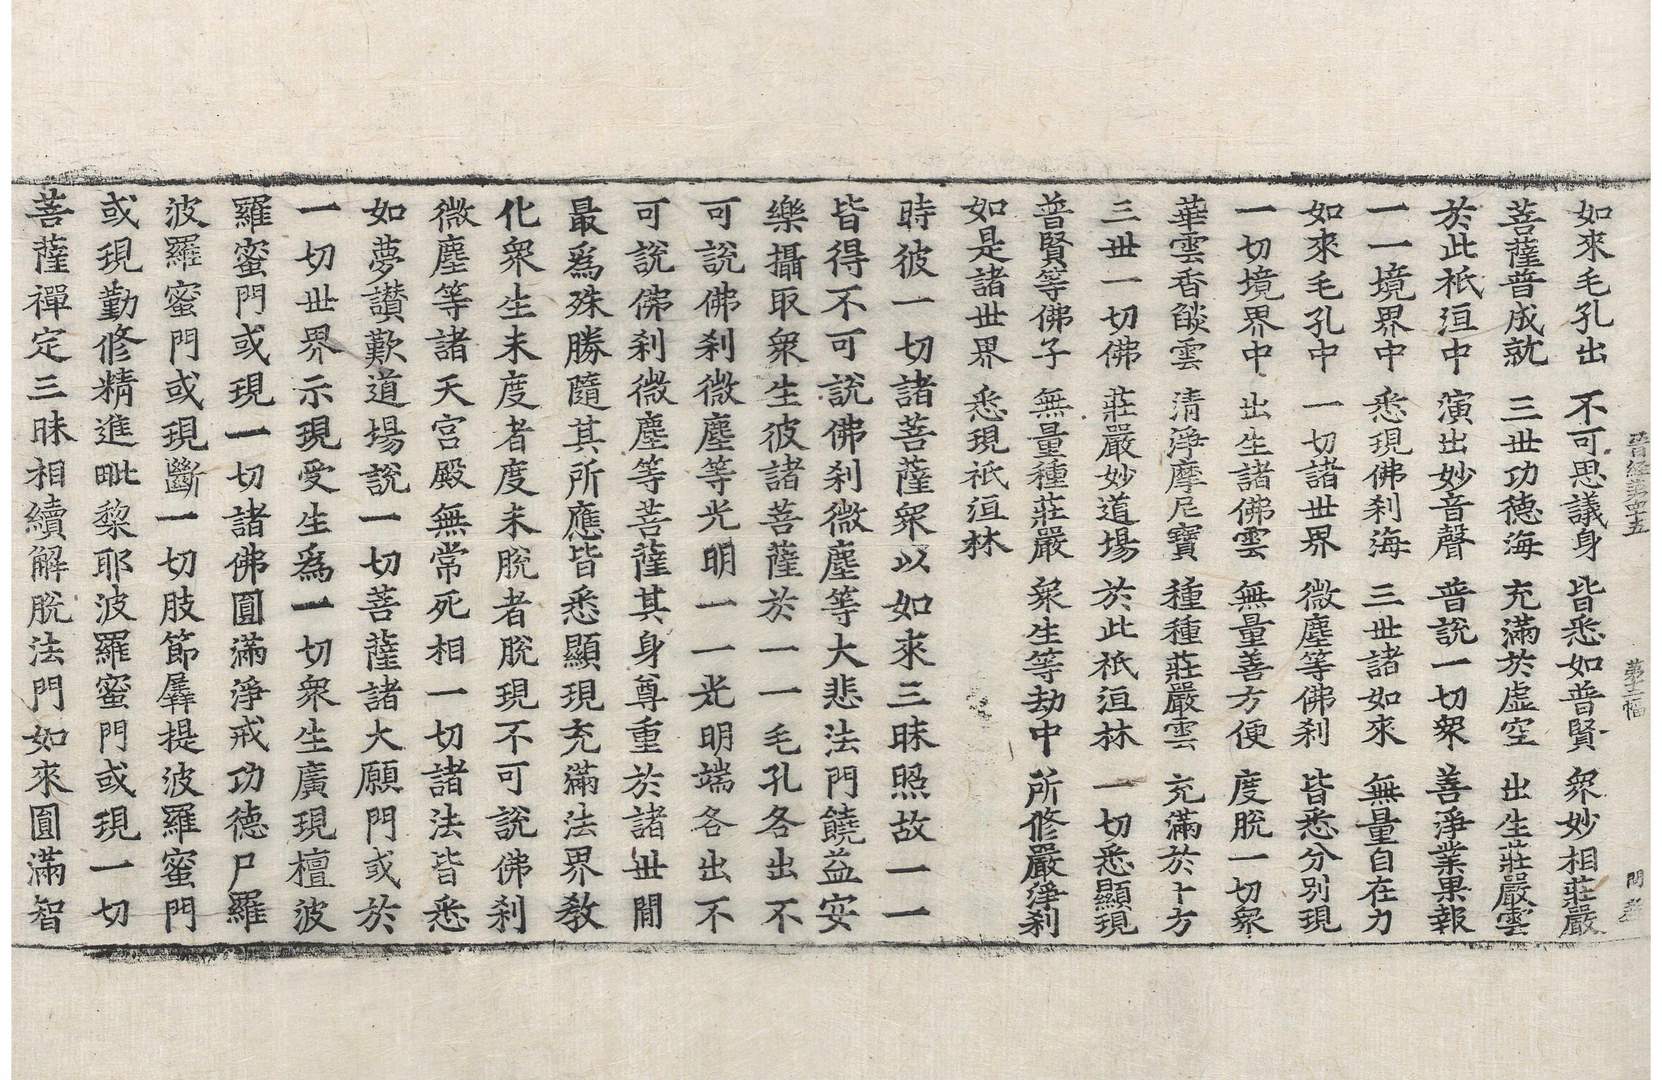 晉經第四五 第十二幅
如來毛孔出 不可思議身 皆悉如普賢 衆妙相莊嚴
菩薩普成就 三世功德海 充滿於虛空 出生莊嚴雲
於此祇洹中 演出妙音聲 普說一切衆 善淨業果報
一一境界中 悉現佛刹海 三世諸如來 無量自在力
如來毛孔中 一切諸世界 微塵等佛刹 皆悉分別現
一切境界中 出生諸佛雲 無量善方便 度脫一切衆
華雲香燄雲 清淨摩尼寶 種種莊嚴雲 充滿於十方
三世一切佛 莊嚴妙道場 於此祇洹林 一切悉顯現
普賢等佛子 無量種莊嚴 衆生等劫中 所修嚴淨刹
如是諸世界 悉現祇洹林
時彼一切諸菩薩衆以如來三昧照故一一
皆得不可說佛刹微塵等大悲法門饒益安
樂攝取衆生彼諸菩薩於一一毛孔各出不
可說佛刹微塵等光明一一光明端各出不
可說佛刹微塵等菩薩其身尊重於諸世間
最爲殊勝隨其所應皆悉顯現充滿法界教
化衆生未度者度未脫者脫現不可說佛刹
微塵等諸天宮殿無常死相一切諸法皆悉
如夢讃歎道場說一切菩薩諸大願門或於
一切世界示現受生爲一切衆生廣現檀波
羅蜜門或現一切諸佛圓滿淨戒功德尸羅
波羅蜜門或現斷一切肢節羼提波羅蜜門
或現勤修精進毗黎耶波羅蜜門或現一切
菩薩禪定三昧相續解脫法門如來圓滿智